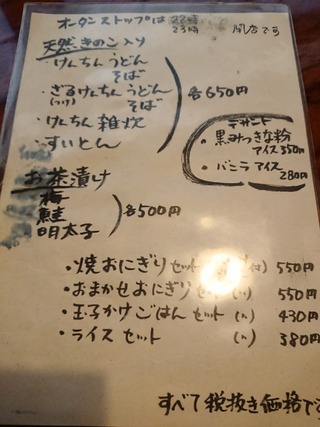 オーダーストップは 22時
23時 閉店です
天然きのこ入り
・けんちんうどん
そば
・ざるけんちんうどん
(つけ) そば
・けんちん雑炊
・すいとん
各650円
デザート
・黒みつきな粉
アイス 350円
・バニラアイス
280円
お茶漬け
梅
鮭
明太子
各500円
・焼おにぎりセット 付) 550円
・おまかせおにぎりセット (〃) 550円
・玉子かけごはんセット (〃) 430円
・ライスセット (〃) 380円
すべて税抜き価格です